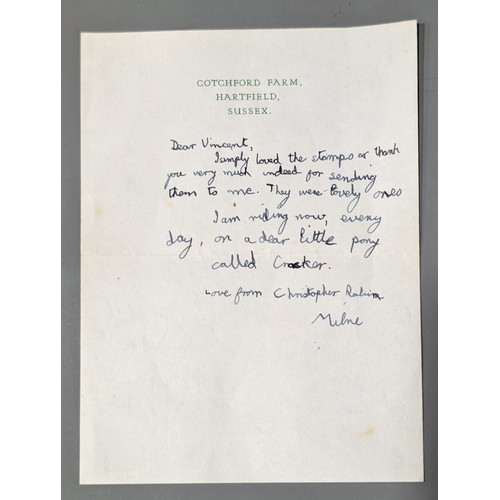 COTCHFORD FARM,
HARTFIELD,
SUSSEX.
Dear Vincent,
I simply loved the stamps or thank
you very much indeed for sending
them to me. They were lovely ones
I am riding now, every
day, on a dear little pony
called Cracker.
Love from Christopher Robin
Milne